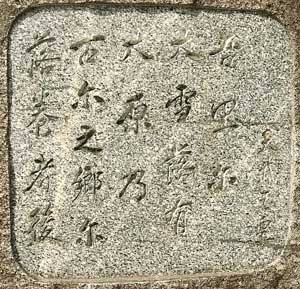 天武天皇
吾里尓
大雪落有
大原乃
古尓之郷尓
落巻者後